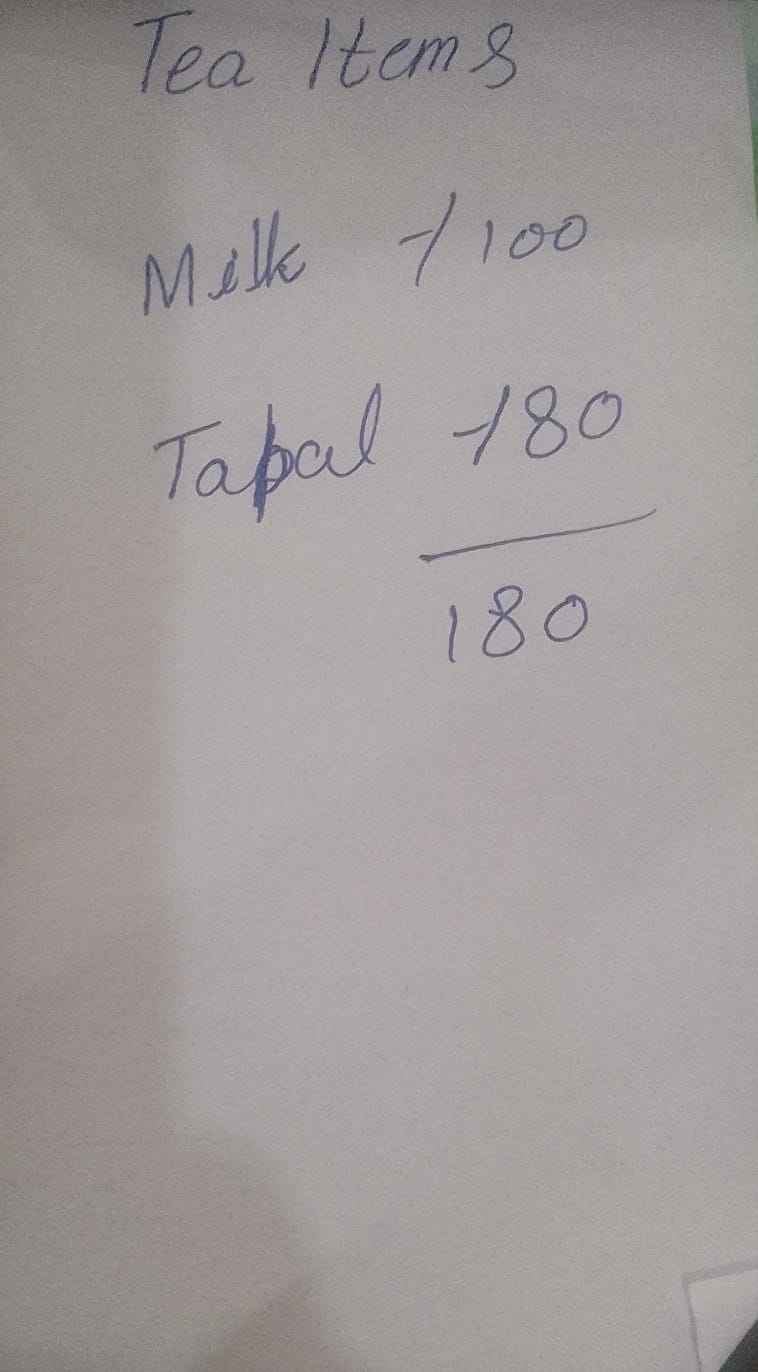 Tea Items
Milk -/100
Tapal -/80
180